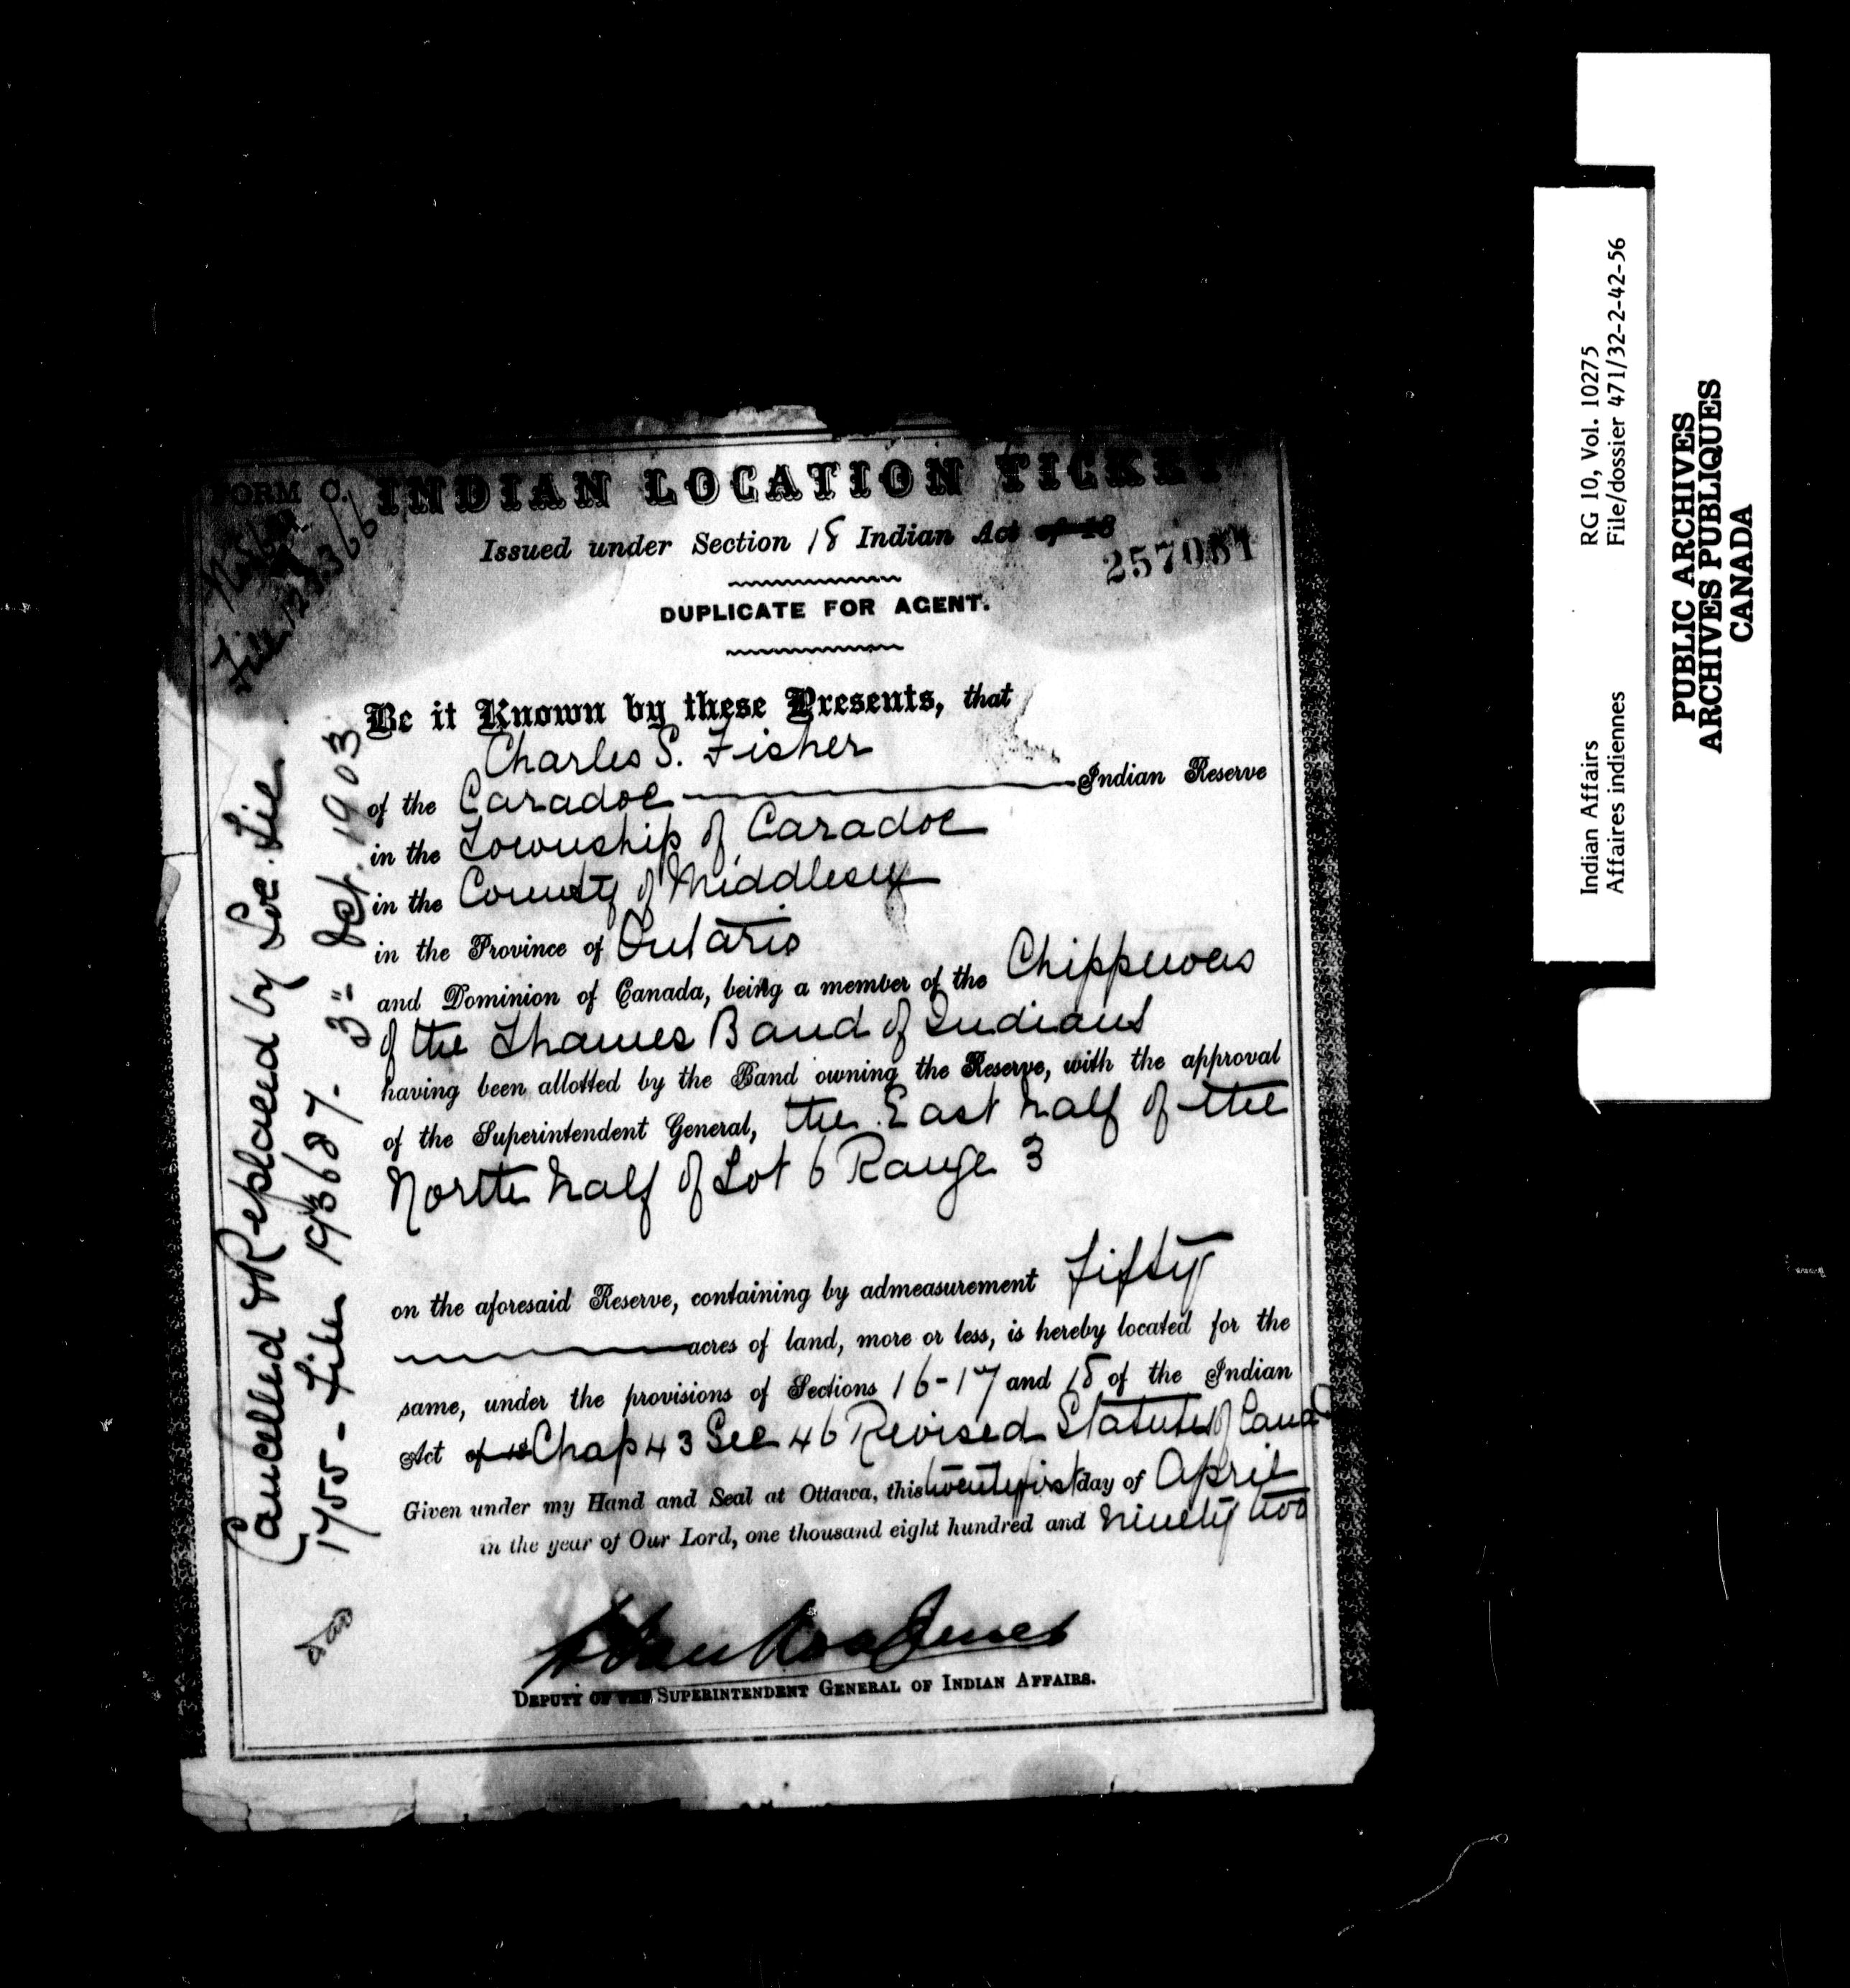 FORM C.
INDIAN LOCATION TICKET
File 123366
Issued under Section 18 Indian Act of 18
257061
DUPLICATE FOR AGENT.
Be it Known by these Presents, that
Charles S. Fisher
of the Caradoc Indian Reserve
in the Township of Caradoc
in the County of Middlesex
in the Province of Ontario
and Dominion of Canada, being a member of the Chippewas
of the Thames Band of Indians
having been allotted by the Band owning the Reserve, with the approval
of the Superintendent General, the East half of the
North half of Lot 6 Range 3
on the aforesaid Reserve, containing by admeasurement fifty
acres of land, more or less, is hereby located for the
same, under the provisions of Sections 16-17 and 18 of the Indian
Act of 18 Chap 43 Sec 46 Revised Statutes of Canada
Given under my Hand and Seal at Ottawa, this twenty first day of April
in the year of Our Lord, one thousand eight hundred and ninety two
DEPUTY OF THE SUPERINTENDENT GENERAL OF INDIAN AFFAIRS.
Cancelled & Replaced by Loc. Tic
1755 - File 193687. 3" Oct. 1903
Indian Affairs RG 10, Vol. 10275
Affaires indiennes File/dossier 471/32-2-42-56
PUBLIC ARCHIVES
ARCHIVES PUBLIQUES
CANADA